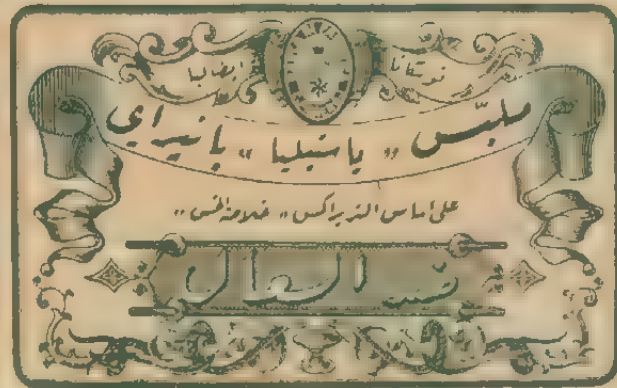 توسكانا ايطاليا
ملبّس « باستيليا » بانيراي
على اساس التريداكس « خلاصة الخس »
ضد السعال